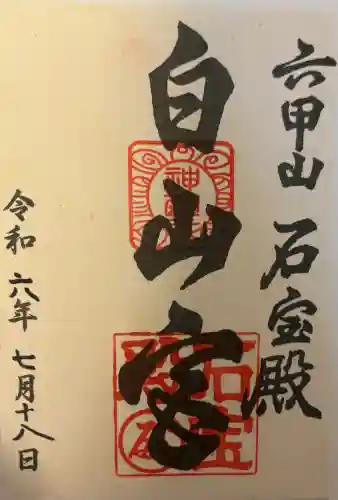 六甲山 石宝殿
白山宮
令和 六年 七月十八日